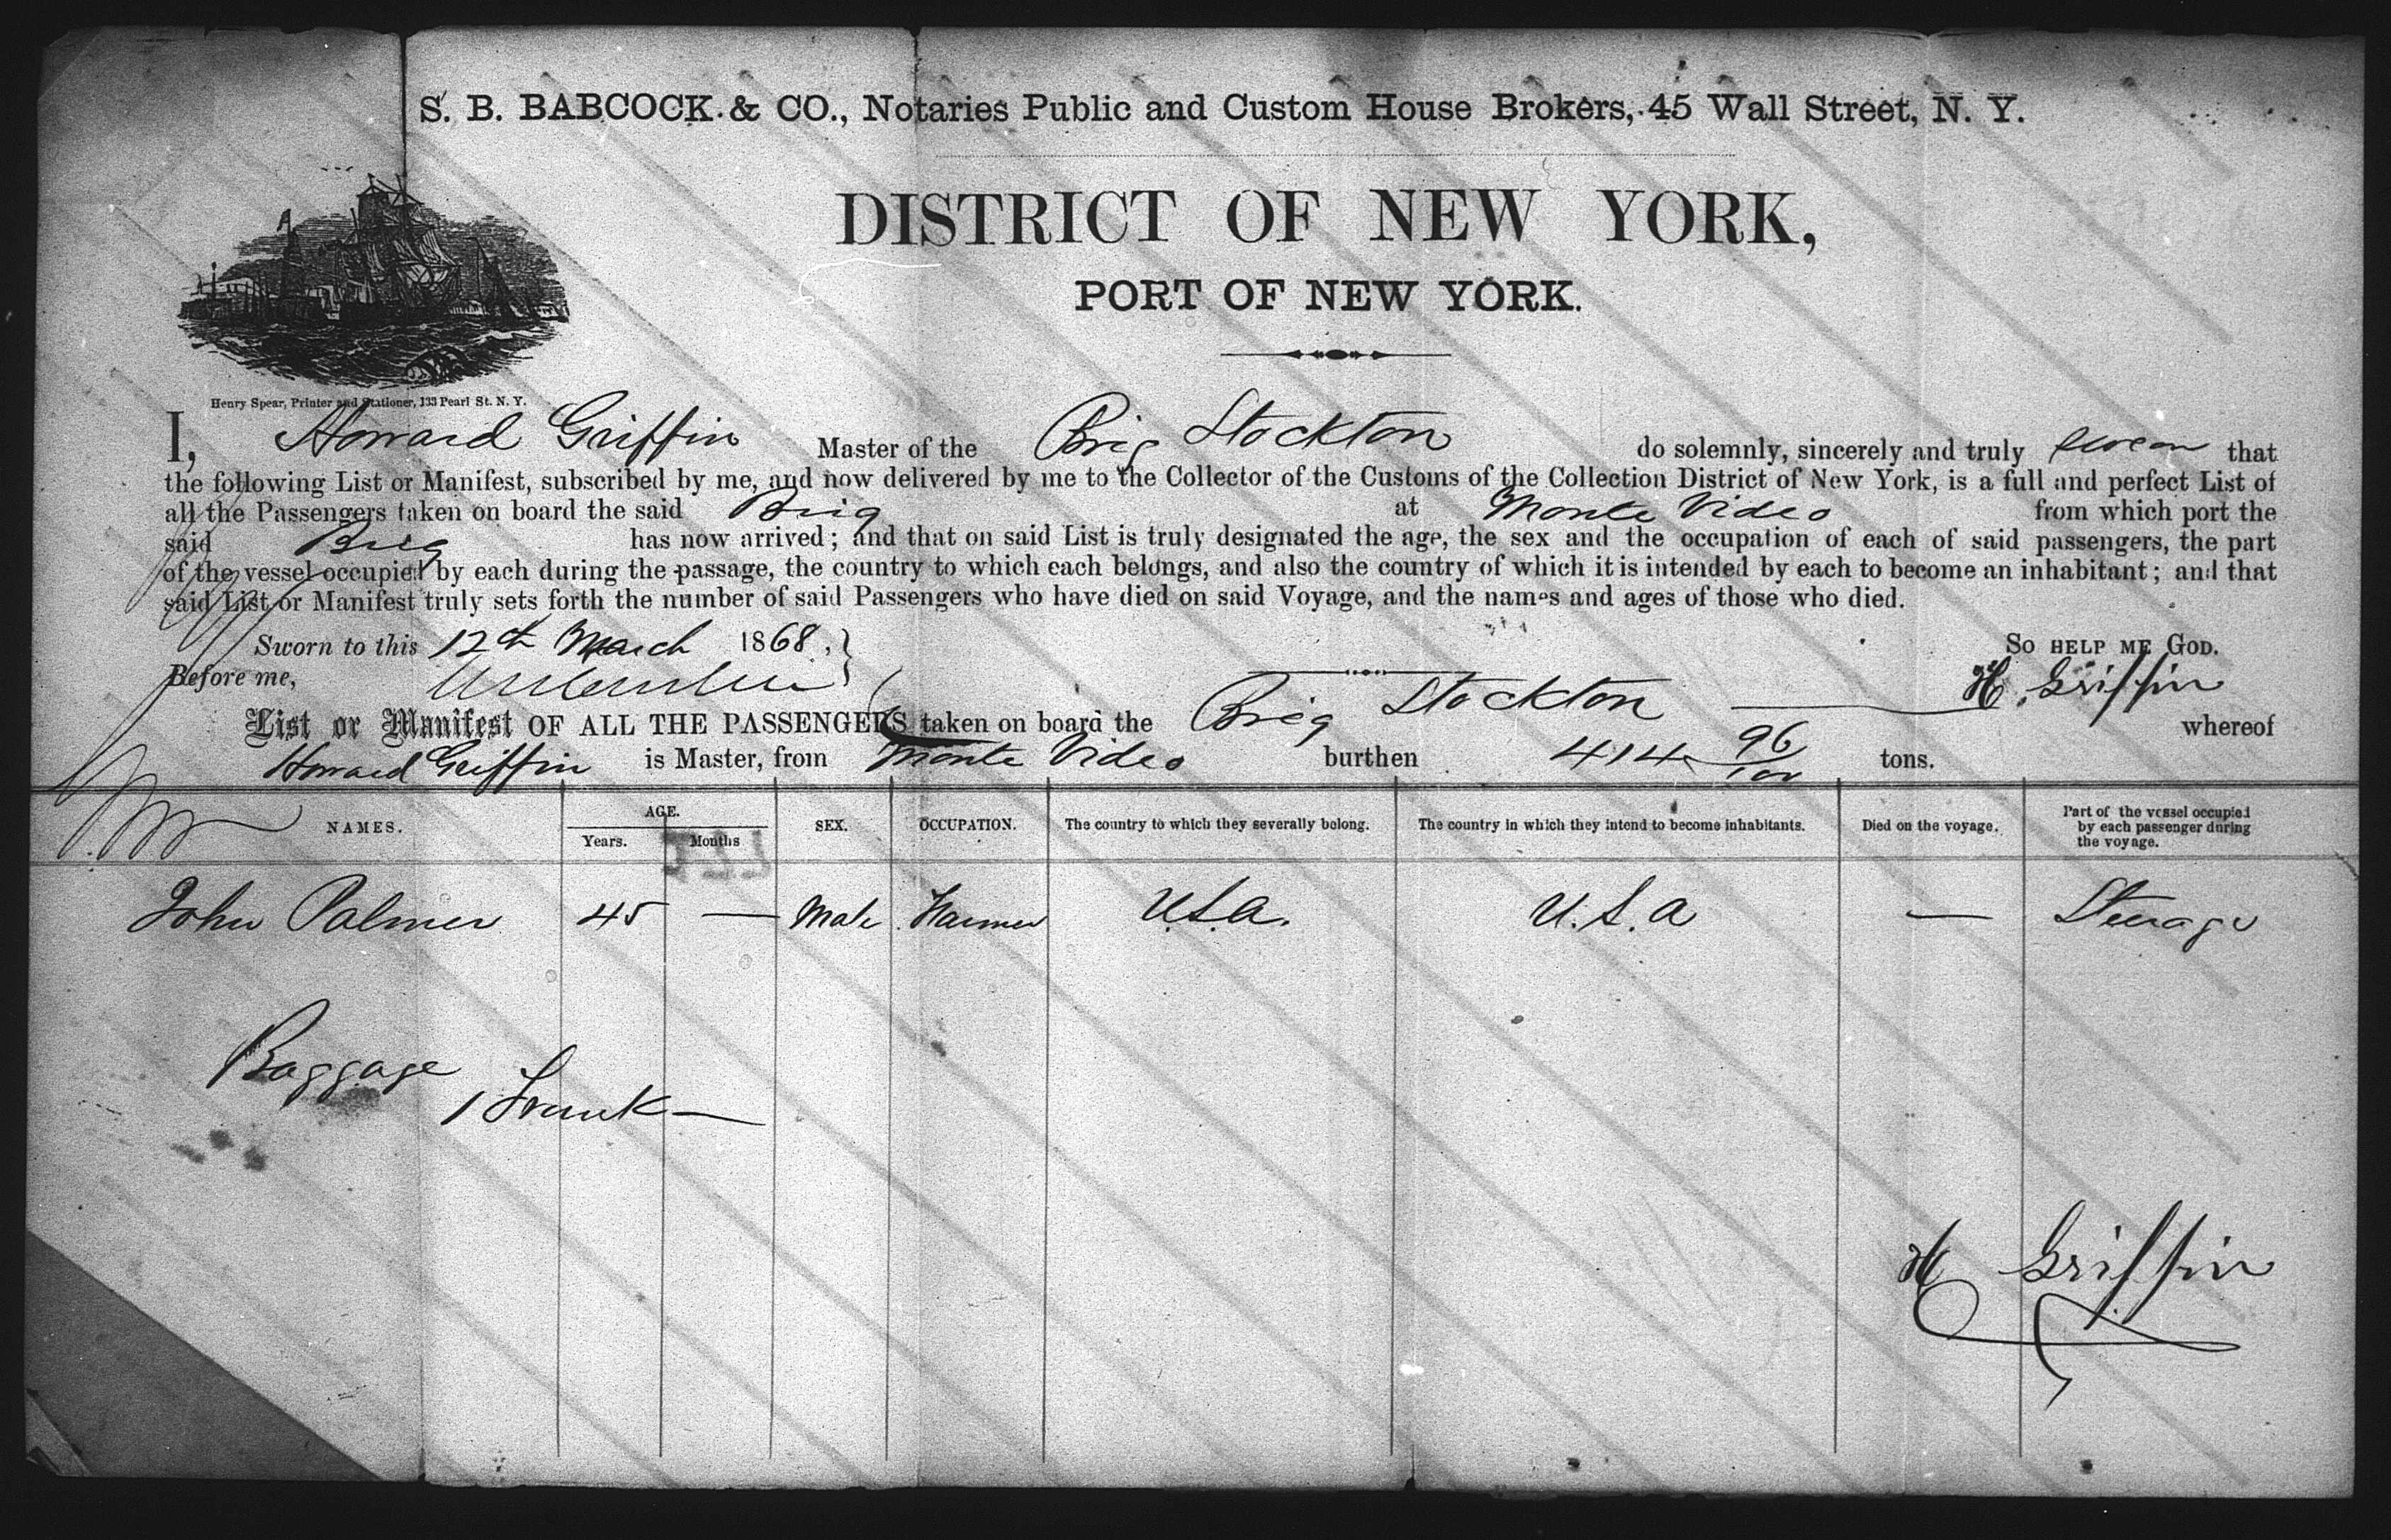 S. B. BABCOCK & CO., Notaries Public and Custom House Brokers, 45 Wall Street, N. Y.
DISTRICT OF NEW YORK,
PORT OF NEW YORK.
Henry Spear, Printer and Stationer, 133 Pearl St. N. Y.
I, Howard Griffin Master of the Brig Stockton do solemnly, sincerely and truly swear that
the following List or Manifest, subscribed by me, and now delivered by me to the Collector of the Customs of the Collection District of New York, is a full and perfect List of
all the Passengers taken on board the said Brig at Monte Video from which port the
said Brig has now arrived; and that on said List is truly designated the age, the sex and the occupation of each of said passengers, the part
of the vessel occupied by each during the passage, the country to which each belongs, and also the country of which it is intended by each to become an inhabitant; and that
said List or Manifest truly sets forth the number of said Passengers who have died on said Voyage, and the names and ages of those who died.
Sworn to this 12th March 1868, SO HELP ME GOD.
Before me, H. Griffin
List or Manifest OF ALL THE PASSENGERS taken on board the Brig Stockton whereof
Howard Griffin is Master, from Monte Video burthen 414 96/100 tons.
NAMES. AGE. Years. Months SEX. OCCUPATION. The country to which they severally belong. The country in which they intend to become inhabitants. Died on the voyage. Part of the vessel occupied by each passenger during the voyage.
John Palmer 45 — Male Farmer U.S.A. U.S.A — Steerage
Baggage
1 Trunk —
H Griffin